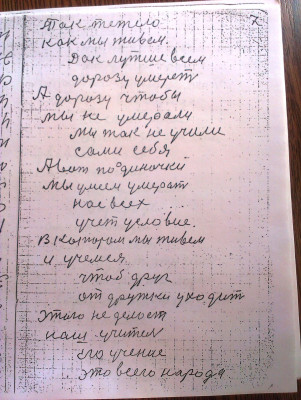 Так тежело
как мы живем.
Дак лутше всем
доразу умерет
А доразу чтобы
мы не умерали
мы так не учили
сами себя
А вот по одиночки
мы умеем умерат
нас всех
учет условие.
В котором мы живем
и учемся
чтоб друг
от дружки уходит
Этого не делает
наш учител
Его учение
это всего народа